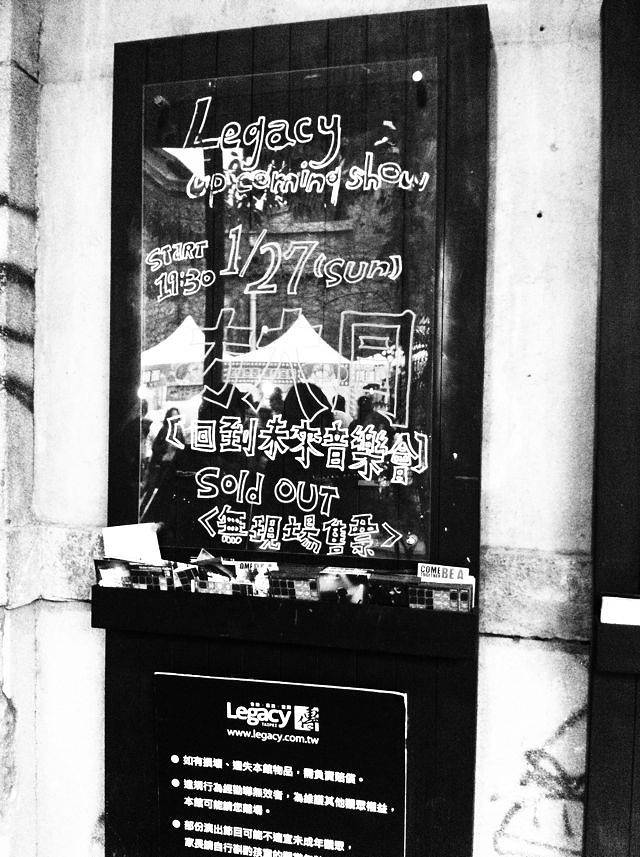 Legacy
upcoming show
START
19:30
1/27 (SUN)
【回到未來音樂會】
Sold OUT
<無現場售票>
COME BE A
Legacy
TAIPEI
www.legacy.com.tw
● 如有損壞、遺失本館物品，需負責賠償。
● 違規行為經勸導無效者，為維護其他觀眾權益，
本館可能請您離場。
● 部份演出節目可能不適宜未成年觀眾，
家長請自行斟酌孩童的